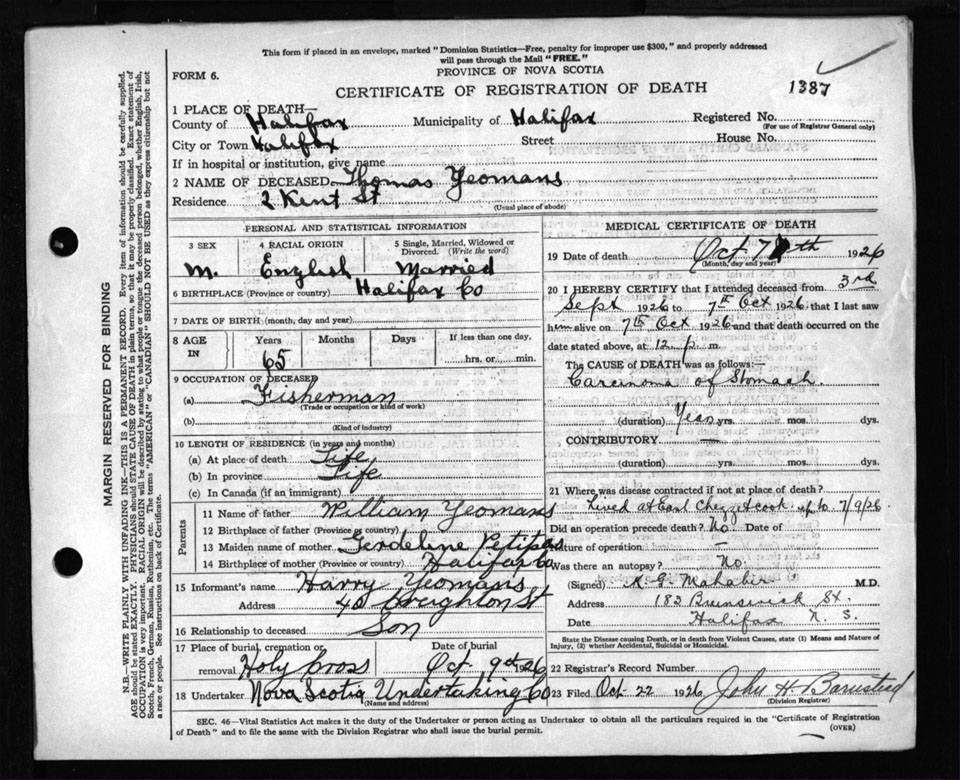 This form if placed in an envelope, marked "Dominion Statistics—Free, penalty for improper use $300," and properly addressed
will pass through the Mail "FREE."
FORM 6.
PROVINCE OF NOVA SCOTIA
CERTIFICATE OF REGISTRATION OF DEATH
1387
1 PLACE OF DEATH—
County of Halifax Municipality of Halifax Registered No.
(For use of Registrar General only)
City or Town Halifax Street House No.
If in hospital or institution, give name
2 NAME OF DECEASED Thomas Yeomans
Residence 2 Kent St
(Usual place of abode)
PERSONAL AND STATISTICAL INFORMATION
3 SEX 4 RACIAL ORIGIN 5 Single, Married, Widowed or
Divorced. (Write the word)
M. English Married
6 BIRTHPLACE (Province or country) Halifax Co
7 DATE OF BIRTH (month, day and year)
8 AGE IN Years Months Days If less than one day,
65 hrs. or min.
9 OCCUPATION OF DECEASED
(a) Fisherman
(Trade or occupation or kind of work)
(b)
(Kind of industry)
10 LENGTH OF RESIDENCE (in years and months)
(a) At place of death Life
(b) In province Life
(c) In Canada (if an immigrant)
Parents
11 Name of father William Yeomans
12 Birthplace of father (Province or country)
13 Maiden name of mother Gerdeline Petipas
14 Birthplace of mother (Province or country) Halifax Co
15 Informant's name Harry Yeomans
Address 40 Creighton St
16 Relationship to deceased Son
17 Place of burial, cremation or Date of burial
removal Holy Cross Oct 9th 1926
18 Undertaker Nova Scotia Undertaking Co
(Name and address)
MEDICAL CERTIFICATE OF DEATH
19 Date of death Oct 7th 1926
(Month, day and year)
20 I HEREBY CERTIFY that I attended deceased from 3rd
Sept 1926 to 7th Oct 1926 that I last saw
him alive on 7th Oct 1926 and that death occurred on
date stated above, at 12 p m.
The CAUSE OF DEATH was as follows:
Carcinoma of Stomach
(duration) Years yrs. mos. dys.
CONTRIBUTORY —
(duration) yrs. mos. dys.
21 Where was disease contracted if not at place of death?
Lived at East Chezzetcook up to 7/9/26
Did an operation precede death? No Date of
Nature of operation —
Was there an autopsy? No
(Signed) M.D.
Address 183 Brunswick St.
Date Halifax N. S.
State the Disease causing Death, or in death from Violent Causes, state (1) Means and Nature of
Injury, (2) whether Accidental, Suicidal or Homicidal.
22 Registrar's Record Number
23 Filed Oct 22 1926 John H. Barnstead
(Division Registrar)
SEC. 46—Vital Statistics Act makes it the duty of the Undertaker or person acting as Undertaker to obtain all the particulars required in the "Certificate of Registration
of Death" and to file the same with the Division Registrar who shall issue the burial permit.
(OVER)
MARGIN RESERVED FOR BINDING
N.B.—WRITE PLAINLY WITH UNFADING INK—THIS IS A PERMANENT RECORD. Every item of information should be carefully supplied.
AGE should be stated EXACTLY. PHYSICIANS should STATE CAUSE OF DEATH in plain terms, so that it may be properly classified. Exact statement of
OCCUPATION is very important. RACIAL ORIGIN will be described by stating to what people or tongue the deceased person belonged, whether English, Irish,
Scotch, French, German, Russian, Ruthenian, etc. The terms "AMERICAN" or "CANADIAN" SHOULD NOT BE USED as they express citizenship but not
a race or people. See instructions on back of Certificate.